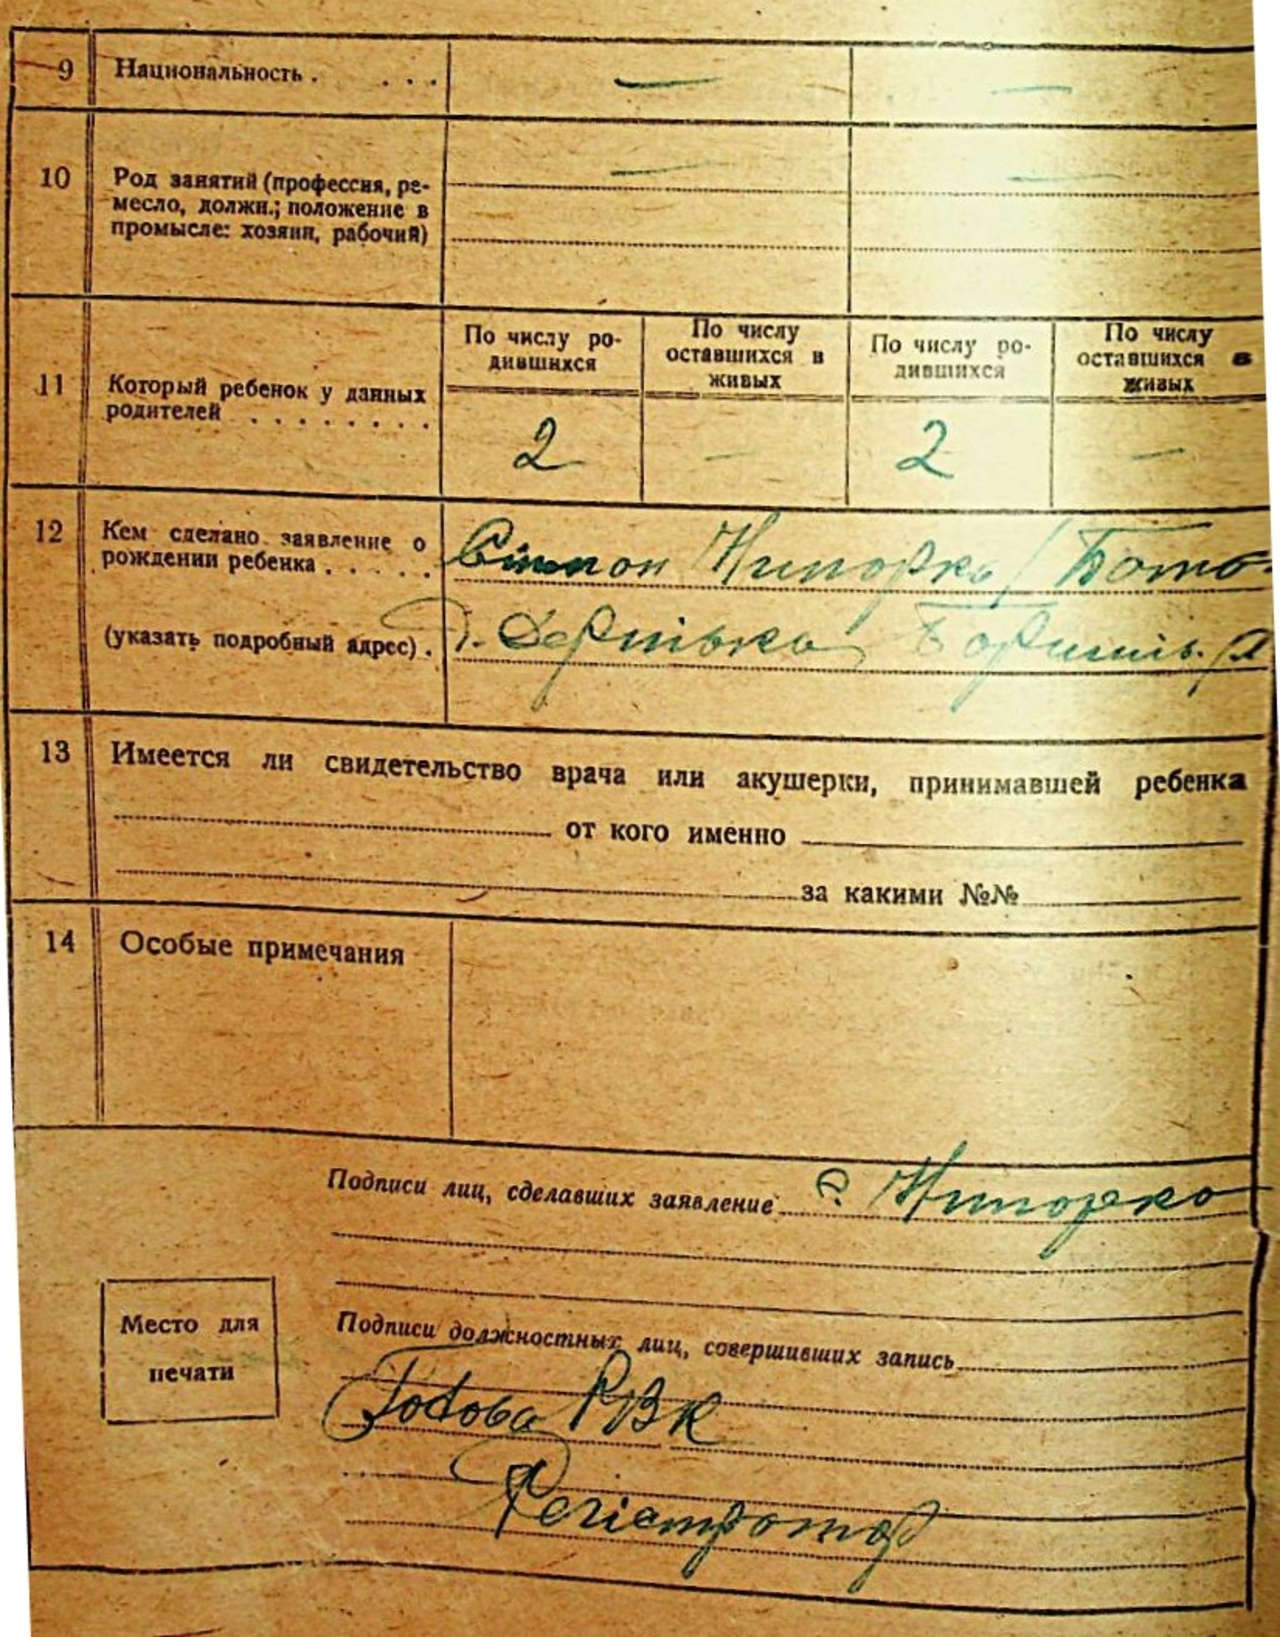 9 Национальность . . . . — —
10 Род занятий (профессия, ре-
месло, должн.; положение в
промысле: хозяин, рабочий) — —
11 Который ребенок у данных
родителей . . . . . . . .
По числу ро-
дившихся
По числу
оставшихся в
живых
По числу ро-
дившихся
По числу
оставшихся в
живых
2 — 2 —
12 Кем сделано заявление о
рождении ребенка . . . . .
Нипорко /
(указать подробный адрес) .
13 Имеется ли свидетельство врача или акушерки, принимавшей ребенка
от кого именно
за какими №№
14 Особые примечания
Подписи лиц, сделавших заявление Нипорко
Место для
печати
Подписи должностных лиц, совершивших запись
Голова РВК
Регістратор